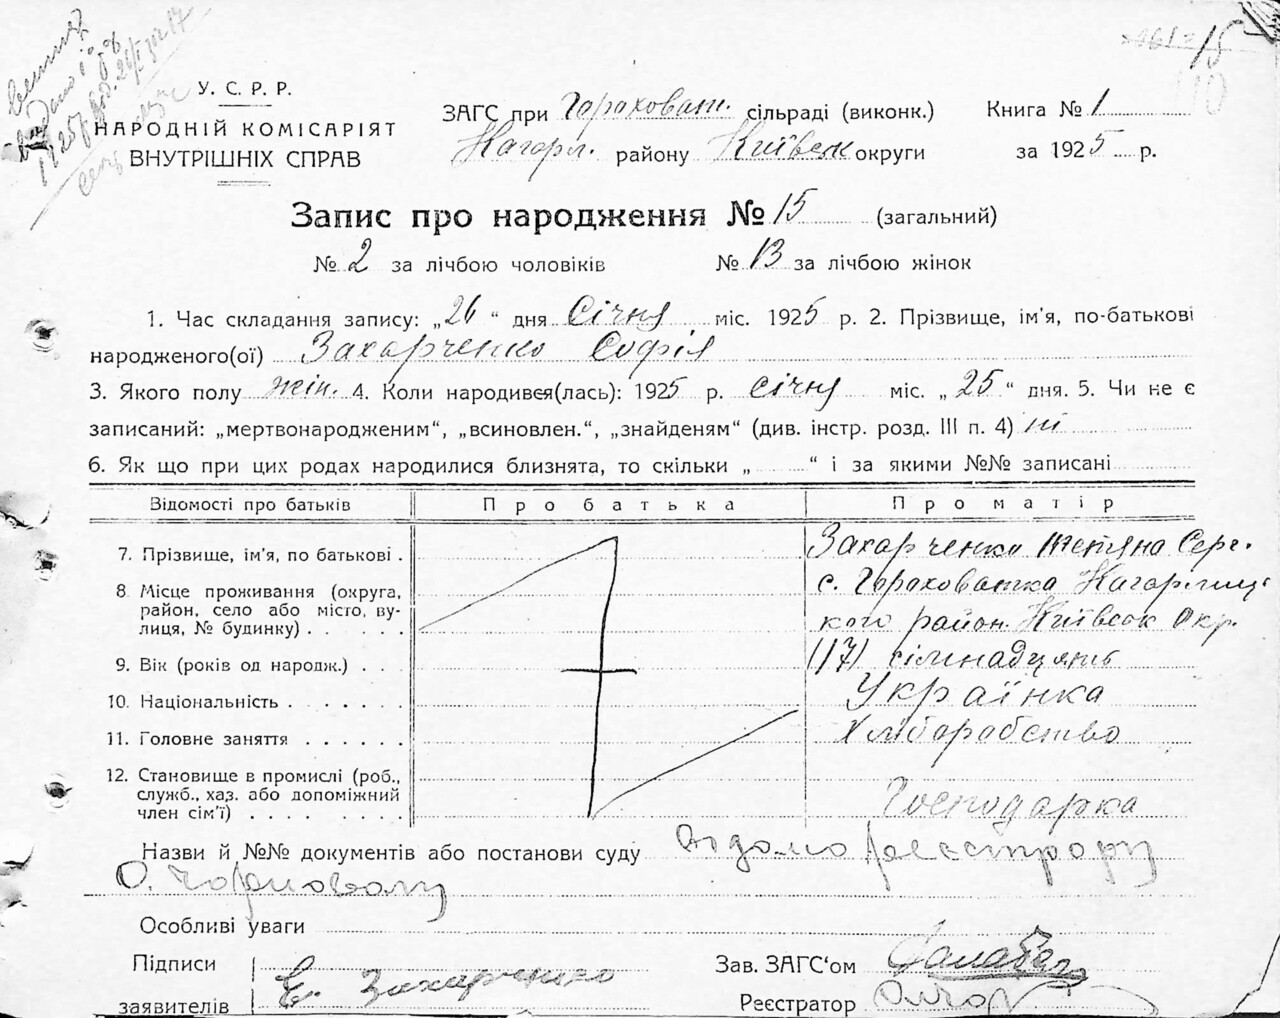 15
У. С. Р. Р.
НАРОДНІЙ КОМІСАРІЯТ
ВНУТРІШНІХ СПРАВ
ЗАГС при Гороховат. сільраді (виконк.)
Книга № 1
Кагарл. району Київськ округи
за 1925 р.
Запис про народження № 15 (загальний)
№ 2 за лічбою чоловіків № 13 за лічбою жінок
1. Час складання запису: „26 “ дня Січня міс. 1925 р. 2. Прізвище, ім'я, по-батькові
народженого(ої) Захарченко Софія
3. Якого полу жін. 4. Коли народився(лась): 1925 р. січня міс. „ 25 “ дня. 5. Чи не є
записаний: „мертвонародженим“, „всиновлен.“, „знайденям“ (див. інстр. розд. III п. 4) ні
6. Як що при цих родах народилися близнята, то скільки „ “ і за якими №№ записані
Відомості про батьків Про батька Про матір
7. Прізвище, ім'я, по батькові . Захарченко Тетяна Серг.
8. Місце проживання (округа, с. Гороховатка Кагарлиц
район, село або місто, ву- кого район. Київськ Окр.
лиця, № будинку) . . . . . .
9. Вік (років од народж.) . . . (17) сімнадцять
10. Національність . . . . . . Українка
11. Головне заняття . . . . . . Хліборобство
12. Становище в промислі (роб.,
служб., хаз. або допоміжний Господарка
член сім'ї) . . . . . . . .
Назви й №№ документів або постанови суду Відомо реєстрору
О. Чорновому
Особливі уваги
Підписи
заявителів Е. Захарченко
Зав. ЗАГС'ом
Реєстратор